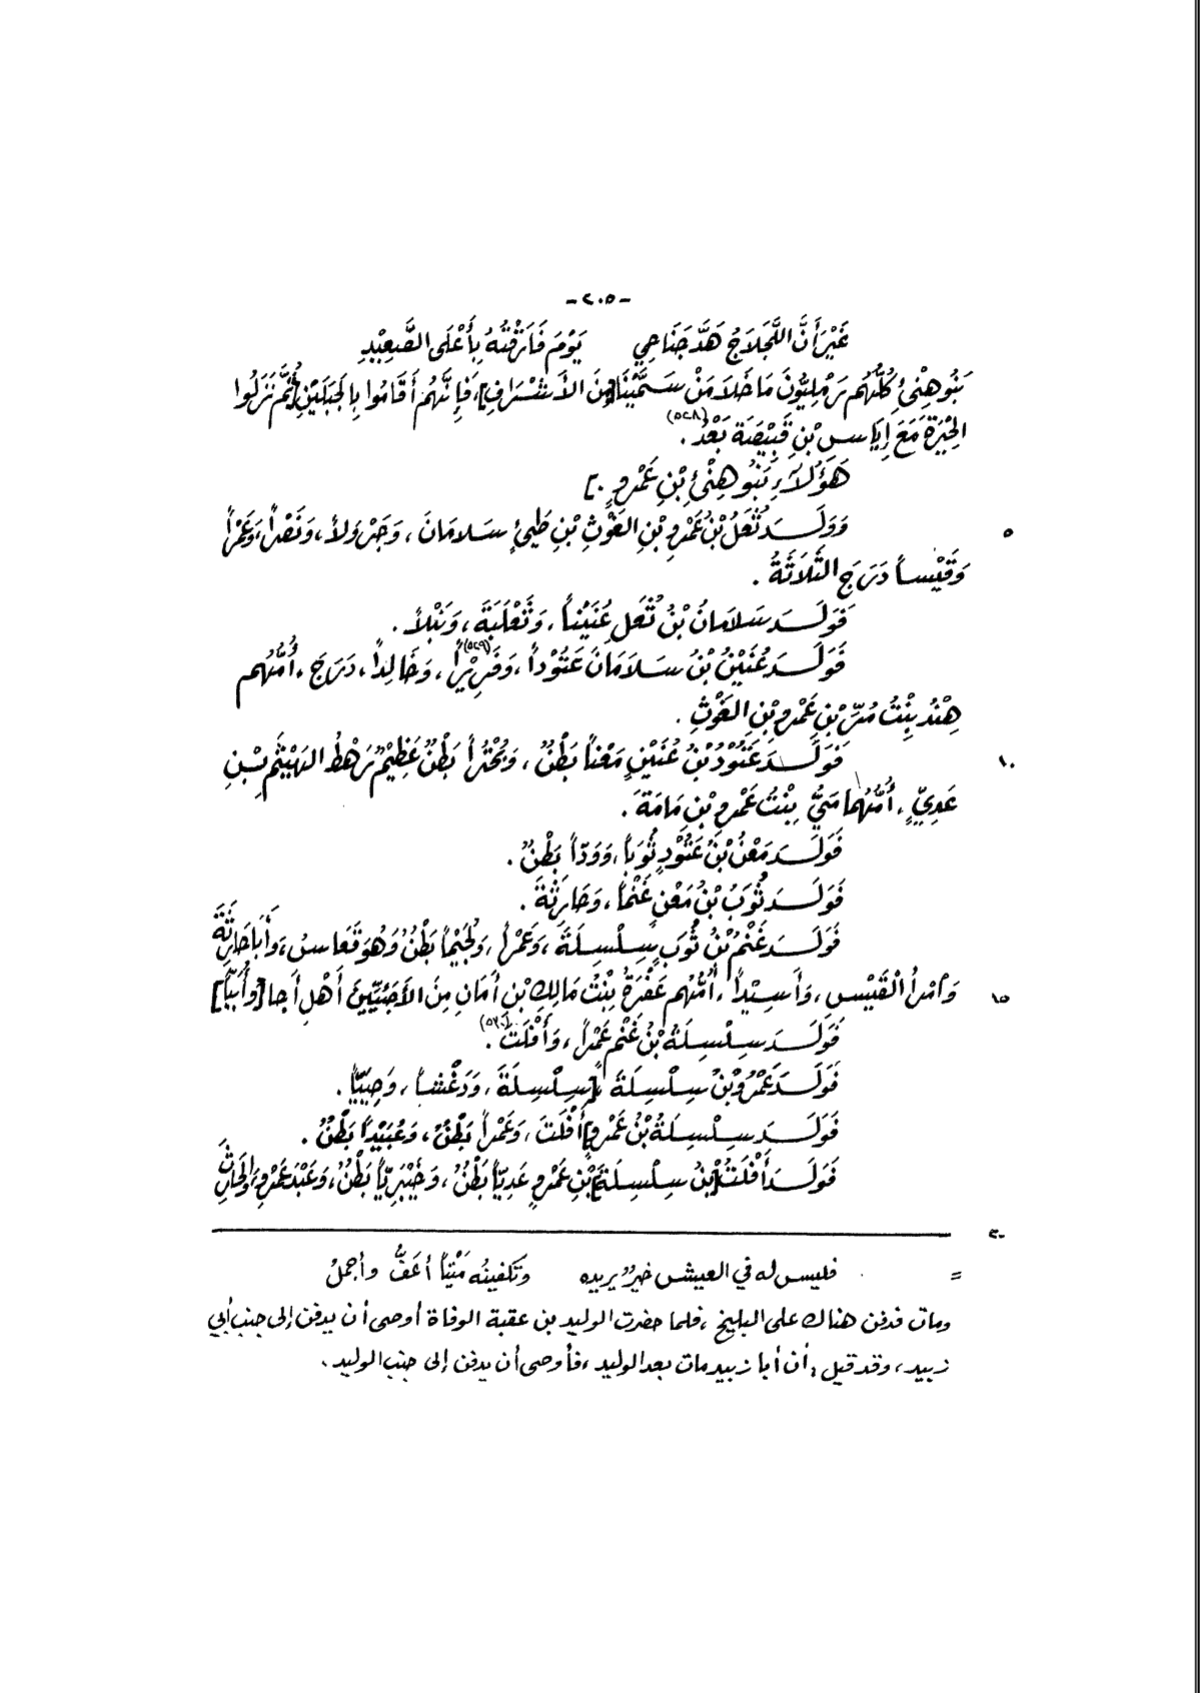 -٢٠٥-
غَيْرَ أَنَّ اللَّجْلَاجَ هَدَّ جَنَاحِي يَوْمَ فَارَقْتُهُ بِأَعْلَى الصَّعِيْدِ
بَنُو هِنْئٍ كُلُّهُم رَمْلِيُّونَ مَا خَلَا مَنْ سَمَّيْنَا [مِنَ الأَشْرَافِ]، فَإِنَّهُم أَقَامُوا بِالجَبَلَيْنِ [ثُمَّ نَزَلُوا
الحِيْرَةَ مَعَ إِيَاسِ بْنِ قَبِيْصَةَ بَعْدُ (٥٢٨).
هَؤُلَاءِ بَنُو هِنْئِ بْنِ عَمْروٍ.]
٥ وَوَلَدَ ثُعَلُ بْنُ عَمْرِو بْنِ الغَوْثِ بْنِ طَيِئٍ سَلامَانَ، وَجَرْوَلاً، وَنَصْراً، وَعَمْراً
وَقَيْساً دَرَجَ الثَّلَاثَةُ.
فَوَلَدَ سَلامَانُ بْنُ ثُعَلِ عُنَيْناً، وَثَعْلَبَةَ، وَنَبْلاً.
فَوَلَدَ عُنَيْنُ بْنُ سَلامَانَ عَتُوْداً، وَفَرِيْراً (٥٢٩)، وَخَالِداً، دَرَجَ، أُمُّهُم
هِنْدُ بِنْتُ مُرِّ بْنِ عَمْرِو بْنِ الغَوْثِ.
١٠ فَوَلَدَ عَتُوْدُ بْنُ عُنَيْنٍ مَعْناً بَطْنٌ، وَبُحْتُراً بَطْنٌ عَظِيْمٌ رَهْطُ الهَيْثَمِ بْنِ
عَدِيٍّ، أُمُّهُما مَيُّ بِنْتُ عَمْرِو بْنِ مَامَةَ.
فَوَلَدَ مَعْنُ بْنُ عَتُوْدٍ ثُوَباً، وَوَدّاً بَطْنٌ.
فَوَلَدَ ثُوَبُ بْنُ مَعْنٍ غَنْماً، وَحَارِثَةَ.
فَوَلَدَ غَنْمُ بْنُ ثُوَبٍ سِلْسِلَةَ، وَعَمْراً، وَلُجَيْماً بَطْنٌ وَهُوَ قَعَاسُ، وَأَبَا حَارِثَةَ
١٥ وَامْرأَ القَيْسِ، وَأَسِيْداً، أُمُّهُم عَفْرَةُ بِنْتُ مَالِكِ بْنِ أَمَانِ مِنَ الأَجَئِيِّيْنَ أَهْلِ أَجا [وَأُبَيّاً]
فَوَلَدَ سِلْسِلَةُ بْنُ غَنْمٍ عَمْراً، وَأَفْلَتَ (٥٣٠).
فَوَلَدَ عَمْرُو بْنُ سِلْسِلَةَ [سِلْسِلَةَ، وَدَغْشاً، وَحِيَيّاً.
فَوَلَدَ سِلْسِلَةُ بْنُ عَمْروٍ] أَفْلَتَ، وَعَمْراً بَطْنٌ، وَعُبَيْداً بَطْنٌ.
فَوَلَدَ أَفْلَتُ [بْنُ سِلْسِلَةَ] بْنِ عَمْروٍ عَدِيّاً بَطْنٌ، وَخَيْبَرِيّاً بَطْنٌ، وَعَبْدَ عَمْروٍ، وَالحَارِثَ
٢٠
= فليس له في العيش خيرٌ يريده وتكفينُه مَيْتاً أعَفُّ وأجملُ
ومات فدفن هناك على البليخ، فلما حضرت الوليد بن عقبة الوفاة أوصى أن يدفن إلى جنب أبي
زبيد، وقد قيل: أن أبا زبيد مات بعد الوليد، فأوصى أن يدفن إلى جنب الوليد.